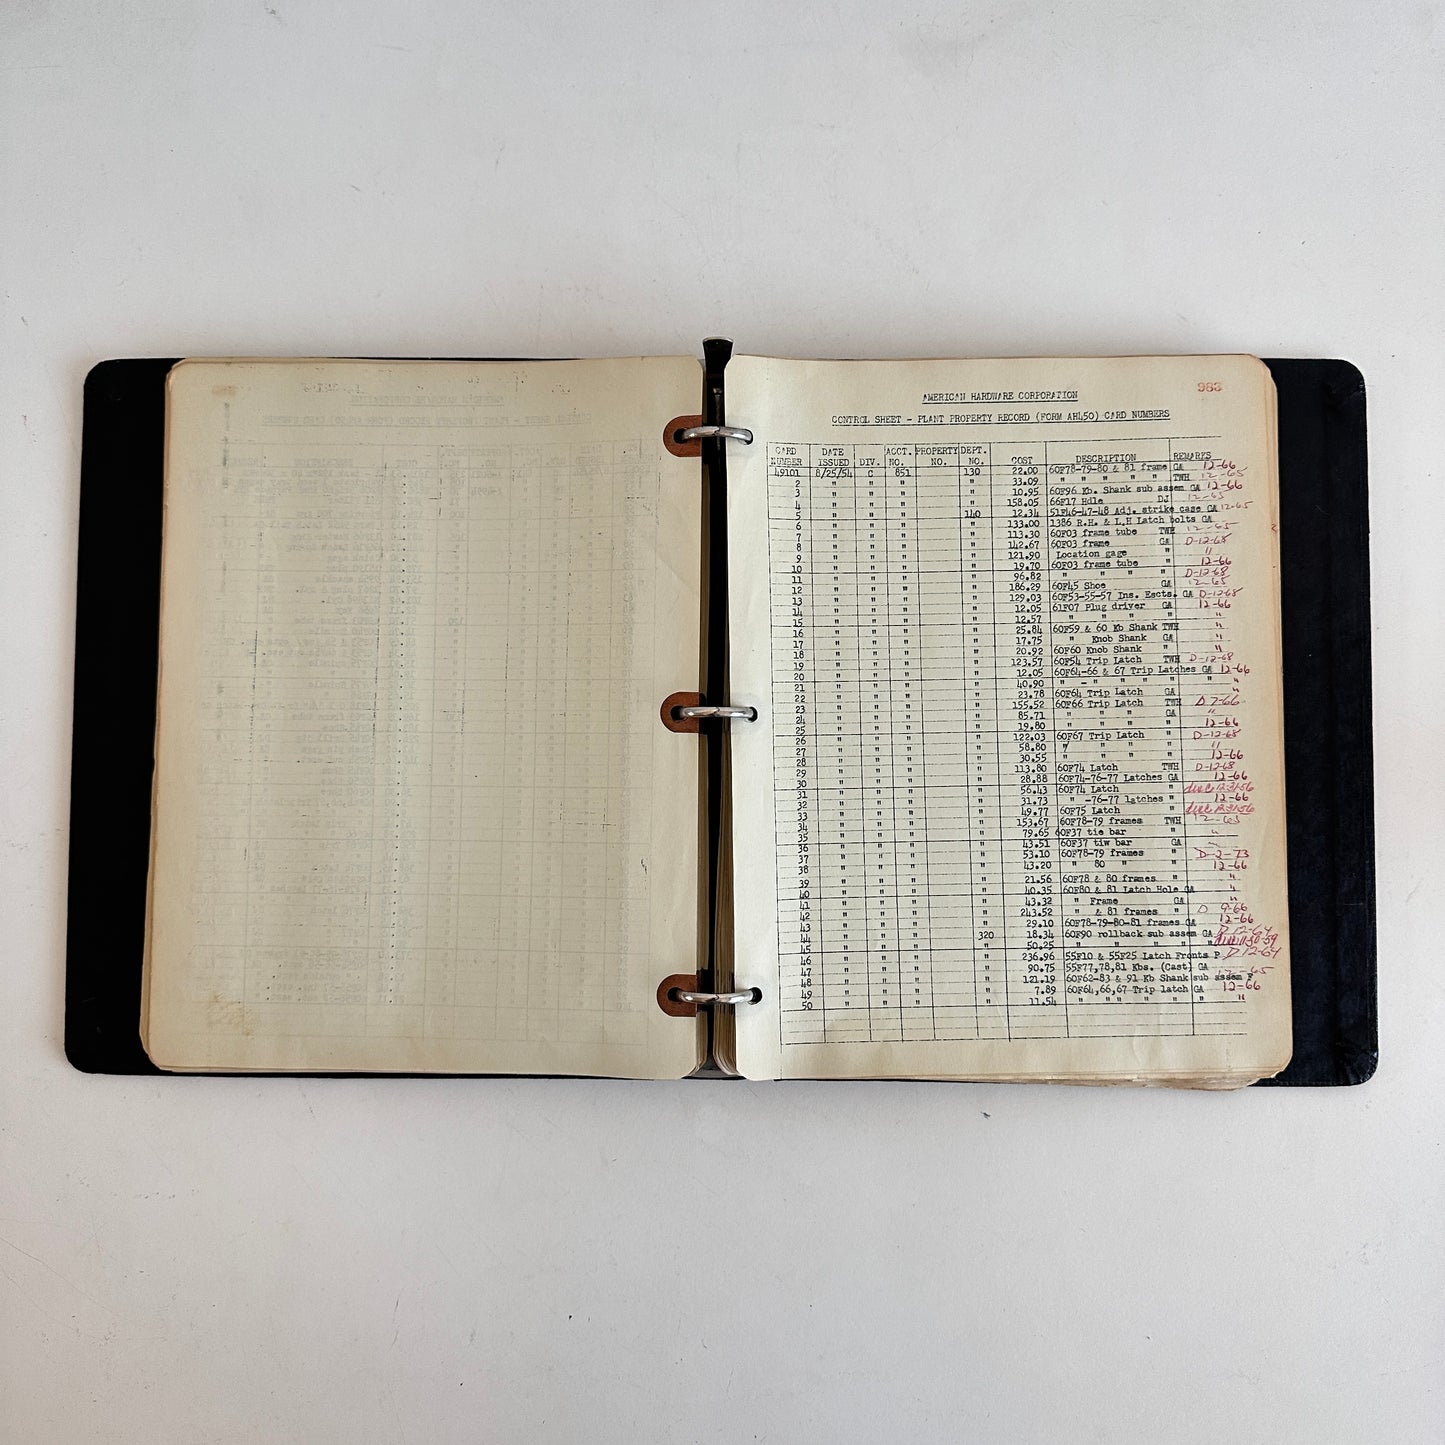 983
AMERICAN HARDWARE CORPORATION
CONTROL SHEET - PLANT PROPERTY RECORD (FORM AH450) CARD NUMBERS
CARD DATE ACCT. PROPERTY DEPT.
NUMBER ISSUED DIV. NO. NO. NO. COST DESCRIPTION REMARKS
49101 8/25/54 C 851 130 22.00 60F78-79-80 & 81 frame GA 12-66
2 " " " " 33.09 " " " " " TWH 12-65
3 " " " " 10.95 60F96 Kb. Shank sub assem GA 12-66
4 " " " " 158.05 66F17 Hdle DJ 12-65
5 " " " 140 12.34 51F46-47-48 Adj. strike case GA 12-65
6 " " " " 133.00 1386 R.H. & L.H Latch bolts GA
7 " " " " 113.30 60F03 frame tube TWH 12-65
8 " " " " 142.67 60F03 frame GA D-12-68
9 " " " " 121.90 Location gage " "
10 " " " " 19.70 60F03 frame tube " 12-66
11 " " " " 96.82 " " " " D-12-68
12 " " " " 186.29 60F45 Shoe GA 12-65
13 " " " " 129.03 60F53-55-57 Ins. Escts. GA D-12-68
14 " " " " 12.05 61F07 Plug driver GA 12-66
15 " " " " 12.57 " " " " "
16 " " " " 25.84 60F59 & 60 Kb Shank TWH "
17 " " " " 17.75 " Knob Shank GA "
18 " " " " 20.92 60F60 Knob Shank " "
19 " " " " 123.57 60F54 Trip Latch TWH D-12-68
20 " " " " 12.05 60F64-66 & 67 Trip Latches GA 12-66
21 " " " " 40.90 " - " " " " " "
22 " " " " 23.78 60F64 Trip Latch GA "
23 " " " " 155.52 60F66 Trip Latch TWH D 7-66
24 " " " " 85.71 " " " GA "
25 " " " " 19.80 " " " " 12-66
26 " " " " 122.03 60F67 Trip Latch " D-12-68
27 " " " " 58.80 " " " " "
28 " " " " 30.55 " " " " 12-66
29 " " " " 113.80 60F74 Latch TWH D-12-68
30 " " " " 28.88 60F74-76-77 Latches GA 12-66
31 " " " " 56.43 60F74 Latch " 12-31-56
32 " " " " 31.73 " -76-77 latches " 12-66
33 " " " " 49.77 60F75 Latch " 12-31-56
34 " " " " 153.67 60F78-79 frames TWH 12-65
35 " " " " 79.65 60F37 tie bar " "
36 " " " " 43.51 60F37 tiw bar GA
37 " " " " 53.10 60F78-79 frames " D-2-73
38 " " " " 43.20 " 80 " " 12-66
39 " " " " 21.56 60F78 & 80 frames " "
40 " " " " 40.35 60F80 & 81 Latch Hole GA "
41 " " " " 43.32 " Frame GA "
42 " " " " 243.52 " & 81 frames " D 9-66
43 " " " " 29.10 60F78-79-80-81 frames GA 12-66
44 " " " 320 18.34 60F90 rollback sub assem GA D 12-64
45 " " " " 50.25 " " " " " 11-30-59
46 " " " " 236.96 55F10 & 55F25 Latch Fronts P D 12-64
47 " " " " 90.75 55F77,78,81 Kbs. (Cast) GA
48 " " " " 121.19 60F62-83 & 91 Kb Shank sub assem F 12-65
49 " " " " 7.89 60F64,66,67 Trip latch GA 12-66
50 " " " " 11.54 " " " " " " "